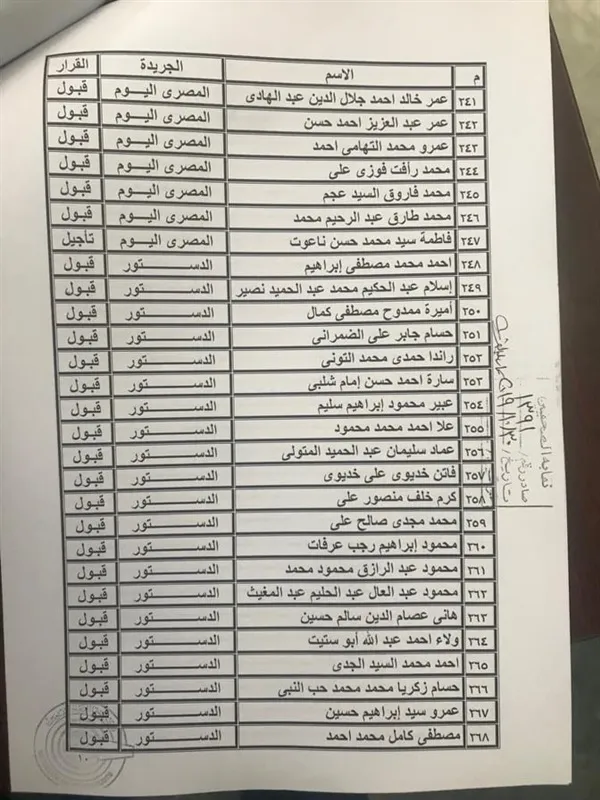 م الاسم الجريدة القرار
٢٤١ عمر خالد احمد جلال الدين عبد الهادى المصرى اليــوم قبول
٢٤٢ عمر عبد العزيز احمد حسن المصرى اليــوم قبول
٢٤٣ عمرو محمد التهامى احمد المصرى اليــوم قبول
٢٤٤ محمد رأفت فوزى على المصرى اليــوم قبول
٢٤٥ محمد فاروق السيد عجم المصرى اليــوم قبول
٢٤٦ محمد طارق عبد الرحيم محمد المصرى اليــوم قبول
٢٤٧ فاطمة سيد محمد حسن ناعوت المصرى اليــوم تأجيل
٢٤٨ احمد محمد مصطفى إبراهيم الدســـتور قبول
٢٤٩ إسلام عبد الحكيم محمد عبد الحميد نصير الدســـتور قبول
٢٥٠ أميرة ممدوح مصطفى كمال الدســـتور قبول
٢٥١ حسام جابر على الضمرانى الدســـتور قبول
٢٥٢ راندا حمدى محمد التونى الدســـتور قبول
٢٥٣ سارة احمد حسن إمام شلبى الدســـتور قبول
٢٥٤ عبير محمود إبراهيم سليم الدســـتور قبول
٢٥٥ علا احمد محمد محمود الدســـتور قبول
٢٥٦ عماد سليمان عبد الحميد المتولى الدســـتور قبول
٢٥٧ فاتن خديوى على خديوى الدســـتور قبول
٢٥٨ كرم خلف منصور على الدســـتور قبول
٢٥٩ محمد مجدى صالح على الدســـتور قبول
٢٦٠ محمود إبراهيم رجب عرفات الدســـتور قبول
٢٦١ محمود عبد الرازق محمود محمد الدســـتور قبول
٢٦٢ محمود عبد العال عبد الحليم عبد المغيث الدســـتور قبول
٢٦٣ هانى عصام الدين سالم حسين الدســـتور قبول
٢٦٤ ولاء احمد عبد الله أبو ستيت الدســـتور قبول
٢٦٥ احمد محمد السيد الجدى الدســـتور قبول
٢٦٦ حسام زكريا محمد محمد حب النبى الدســـتور قبول
٢٦٧ عمرو سيد إبراهيم حسين الدســـتور قبول
٢٦٨ مصطفى كامل محمد احمد الدســـتور قبول
١٠
نقابة الصحفيين
صادر رقم / ١٣٩١
تاريخ /